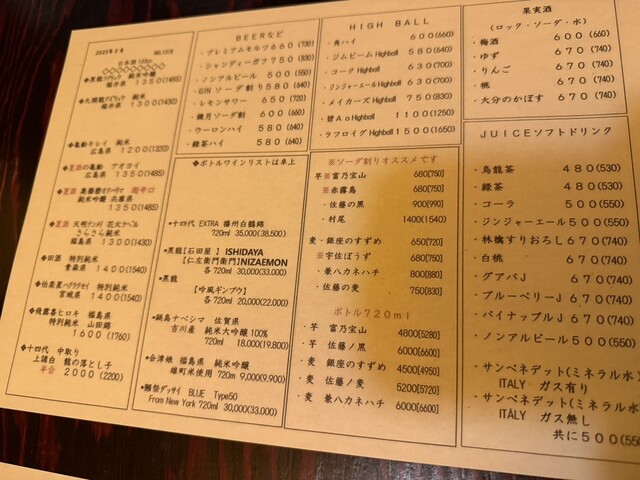 2025年8月 NO.1378
日本酒 180ml
純米吟醸
福井県 1350(1485)
純米
福井県 1300(1430)
◆亀齢キレイ 純米
広島県 1200(1320)
◆夏酒の亀齢 アオヨイ
広島県 1350(1485)
◆夏酒 超辛口
純米吟醸 兵庫県
1350(1485)
さらさら純米
福島県 1300(1430)
◆田酒 特別純米
青森県 1400(1540)
◆伯楽星ハクラクセイ 特別純米
宮城県 1400(1540)
◆飛露喜ヒロキ 福島県
特別純米 山田錦
1600 (1760)
◆十四代 中取り
上諸白 龍の落とし子
年合 2000 (2200)
BEERなど
・プレミアムモルツ660(730)
・シャンディーガフ750(830)
・ノンアルビール 500(550)
・GIN ソーダ割り580(640)
・レモンサワー 650(720)
・鏡月ソーダ割 600(660)
・ウーロンハイ 580(640)
・緑茶ハイ 580(640)
◆ボトルワインリストは卓上
・十四代 EXTRA 播州白鶴錦
720ml 35,000(38,500)
・黒龍【石田屋】ISHIDAYA
【仁左衛門衛門】NIZAEMON
各 720ml 30,000(33.000)
・黒龍
【吟風ギンプウ】
各720ml 20,000(22.000)
◆鍋島ナベシマ 佐賀県
吉川産 純米大吟醸100%
720ml 18,000(19.800)
◆会津娘 福島県 純米吟醸
雄町米使用 720m 9,000(9.900)
◆獺祭ダッサイ BLUE Type50
From New York 720ml 30,000(33.000)
HIGH BALL
・角ハイ 600(660)
・ジムビームHighball 580(640)
・コークHighball 630(700)
・ジンジャーエールHighball 630(700)
・メイカーズ Highball 750(830)
・碧AoHighball 1100(1250)
・ラフロイグHighball 1500(1650)
※ソーダ割りオススメです
芋※富乃宝山 680[750]
※赤霧島 680[750]
・佐藤の黒 900[990]
・村尾 1400(1540)
麦・銀座のすずめ 650[720]
※宇佐ぼうず 680[750]
・兼八カネハチ 800[880]
・佐藤の麦 750[830]
ボトル720ml
・芋 富乃宝山 4800[5280]
・芋 佐藤ノ黒 6000[6600]
・麦 銀座のすずめ 4500[4950]
・麦 佐藤ノ麦 5200[5720]
・麦 兼八カネハチ 6000[6600]
果実酒
(ロック・ソーダ・水)
・梅酒 600(660)
・ゆず 670(740)
・りんご 670(740)
・桃 670(740)
・大分のかぼす 670(740)
JUICEソフトドリンク
・烏龍茶 480(530)
・緑茶 480(530)
・コーラ 500(550)
・ジンジャーエール500(550)
・林檎すりおろし670(740)
・白桃 670(740)
・グアバJ 670(740)
・ブルーベリーJ 670(740)
・パイナップルJ 670(740)
・ノンアルビール 500(550)
・サンペネデット(ミネラル水)
ITALY ガス有り
・サンペネデット(ミネラル水)
ITALY ガス無し
共に500(550